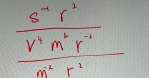 s⁻⁴ r²
v⁴ m² r⁻²
m⁻² r²